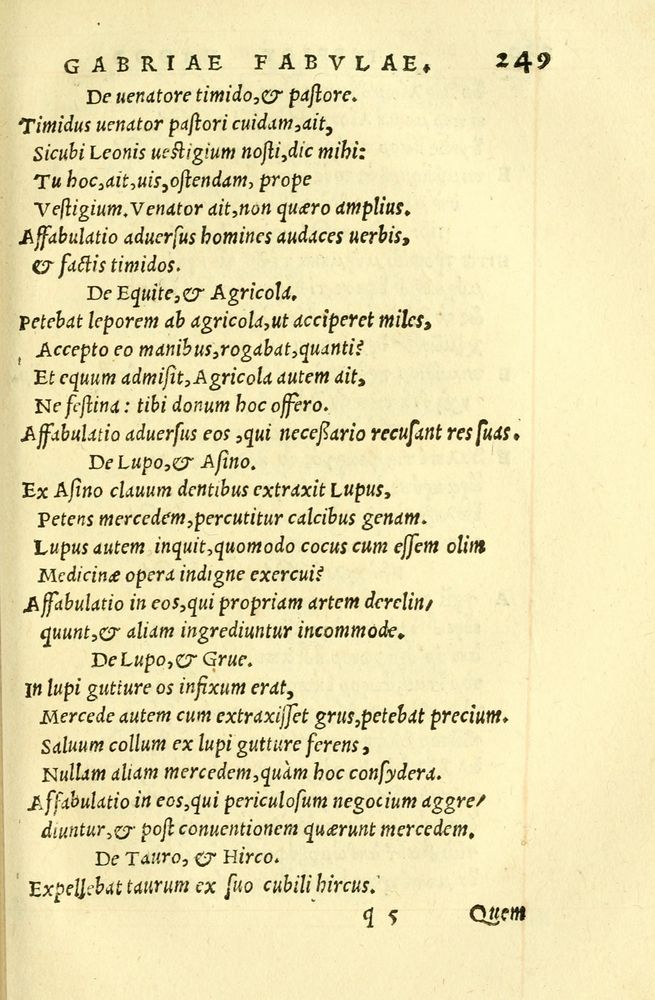 GABRIAE FABVLAE. 249
De uenatore timido,& paſtore.
Timidus uenator paſtori cuidam,ait,
Sicubi Leonis ueſtigium noſti,dic mihi:
Tu hoc,ait,uis,oſtendam, prope
Veſtigium.Venator ait,non quæro amplius.
Affabulatio aduerſus homines audaces uerbis,
& factis timidos.
De Equite,& Agricola.
Petebat leporem ab agricola,ut acciperet miles,
Accepto eo manibus,rogabat,quanti?
Et equum admiſit,Agricola autem ait,
Ne feſtina: tibi donum hoc offero.
Affabulatio aduerſus eos ,qui neceßario recuſant res ſuas.
De Lupo,& Aſino.
Ex Aſino clauum dentibus extraxit Lupus,
Petens mercedem,percutitur calcibus genam.
Lupus autem inquit,quomodo cocus cum eſſem olim
Medicinæ opera indigne exercui?
Affabulatio in eos,qui propriam artem derelin/
quunt,& aliam ingrediuntur incommode.
De Lupo,& Grue.
In lupi gutture os infixum erat,
Mercede autem cum extraxiſſet grus,petebat precium.
Saluum collum ex lupi gutture ferens,
Nullam aliam mercedem,quàm hoc conſydera.
Affabulatio in eos,qui periculoſum negocium aggre/
diuntur,& poſt conuentionem quærunt mercedem.
De Tauro, & Hirco.
Expellebat taurum ex ſuo cubili hircus.
q 5 Quem